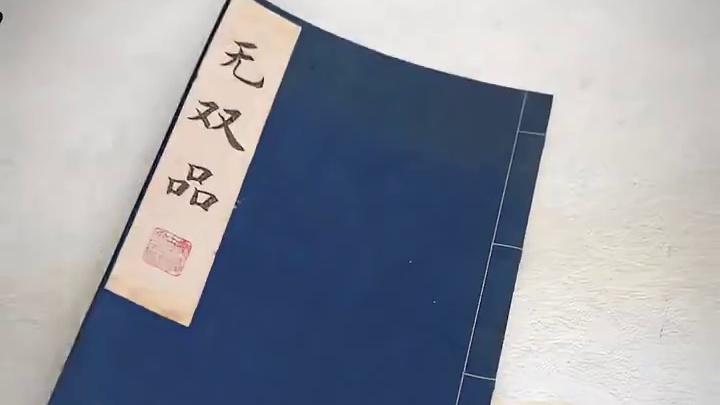 无双品